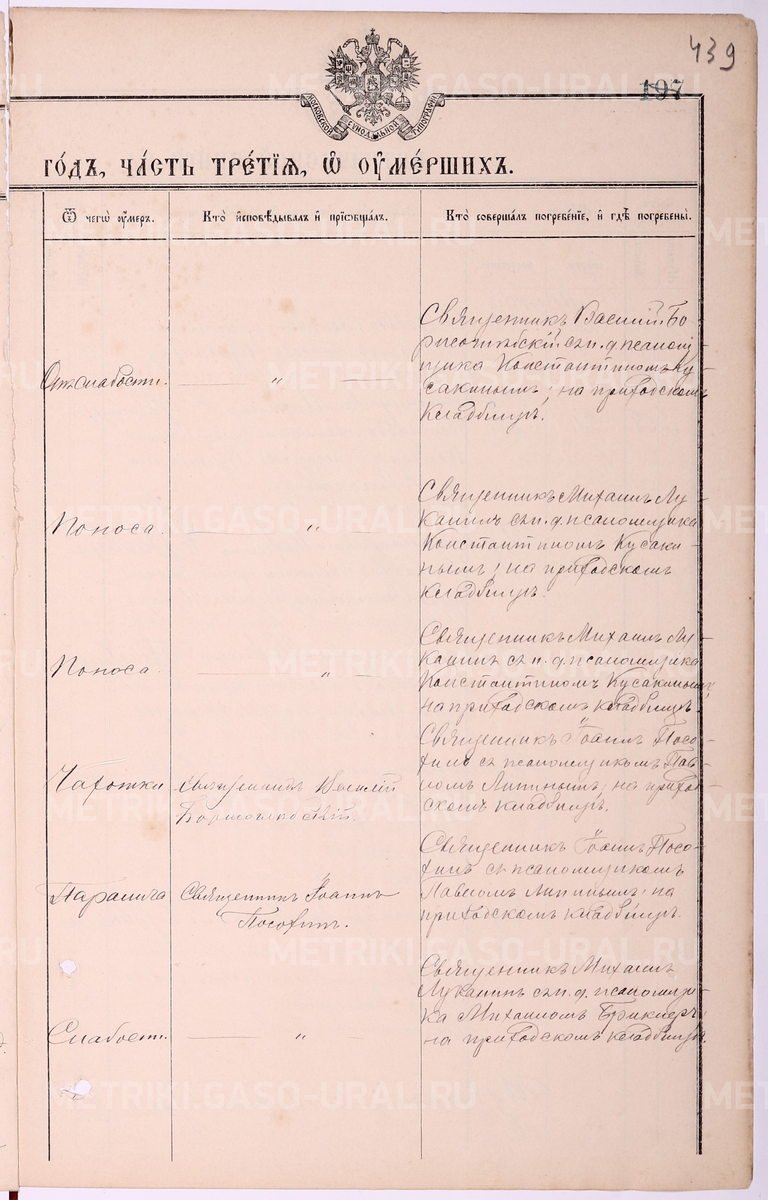 439
197
МОСКОВСКОЙ СѴНОДАЛЬНОЙ ТИПОГРАФІИ
го́дъ, ча́сть тре́тїѧ, ѡ҆ ᲂу҆ме́ршихъ.
Ѿ чегѡ̀ ᲂу҆́меръ.
Кто̀ и҆сповѣ́дывалъ и҆ прїѡбща́лъ.
Кто̀ соверша́лъ погребе́нїе, и҆ гдѣ̀ погребены̀.
Отъ слабости.
— „ —
Священникъ Василій Бо-
рисоглѣбскій съ и. д. псалом-
щика Константиномъ Ку-
сакинымъ; на приходскомъ
кладбищѣ.
Поноса.
— „ —
Священникъ Михаилъ Лу-
канинъ съ и. д. псаломщика
Константиномъ Кусаки-
нымъ; на приходскомъ
кладбищѣ.
Поноса.
— „ —
Священникъ Михаилъ Лу-
канинъ съ и. д. псаломщика
Константиномъ Кусакинымъ;
на приходскомъ кладбищѣ.
Чахотки
Священникъ Василій
Борисоглѣбскій.
Священникъ Іоаннъ Посо-
хинъ съ псаломщикомъ Пав-
ломъ Липинымъ; на приход-
скомъ кладбищѣ.
Паралича
Священникъ Іоаннъ
Посохинъ.
Священникъ Іоаннъ Посо-
хинъ съ псаломщикомъ
Павломъ Липинымъ; на
приходскомъ кладбищѣ.
Слабости.
— „ —
Священникъ Михаилъ
Луканинъ съ и. д. псаломщи-
ка Михаиломъ
на приходскомъ кладбищѣ.
METRIKI.GASO-URAL.RU